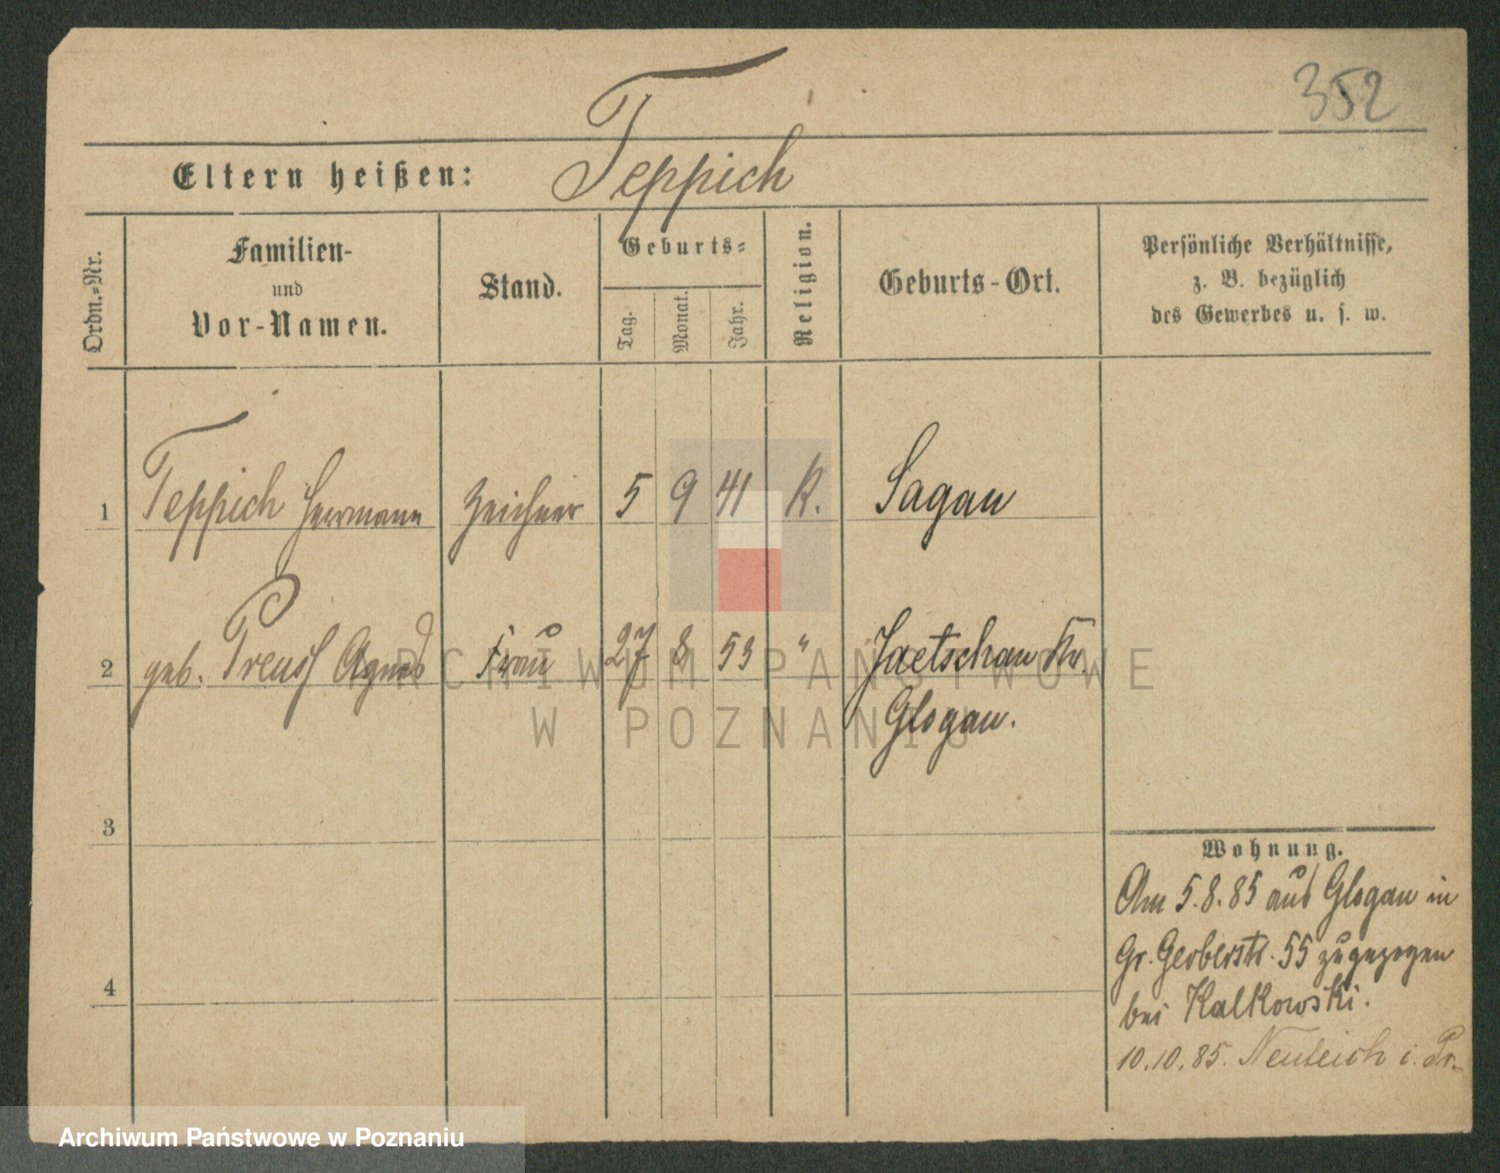 352
Teppich
Eltern heißen:
Ordn.=Nr.
Familien-
und
Vor-Namen.
Stand.
Geburts=
Tag.
Monat.
Jahr.
Religion.
Geburts-Ort.
Persönliche Verhältnisse,
z. B. bezüglich
des Gewerbes u. s. w.
1 Teppich Hermann Zeichner 5 9 41 K. Sagan
2 geb. Preuss Agnes Frau 27 8 53 " Jaetschau Kr.
Glogau.
3
4
Wohnung.
Am 5.8.85 aus Glogau in
Gr. Gerberstr. 55 zugezogen
bei Kalkowski.
10.10.85. Neuteich i. Pr.
ARCHIWUM PAŃSTWOWE
W POZNANIU
Archiwum Państwowe w Poznaniu